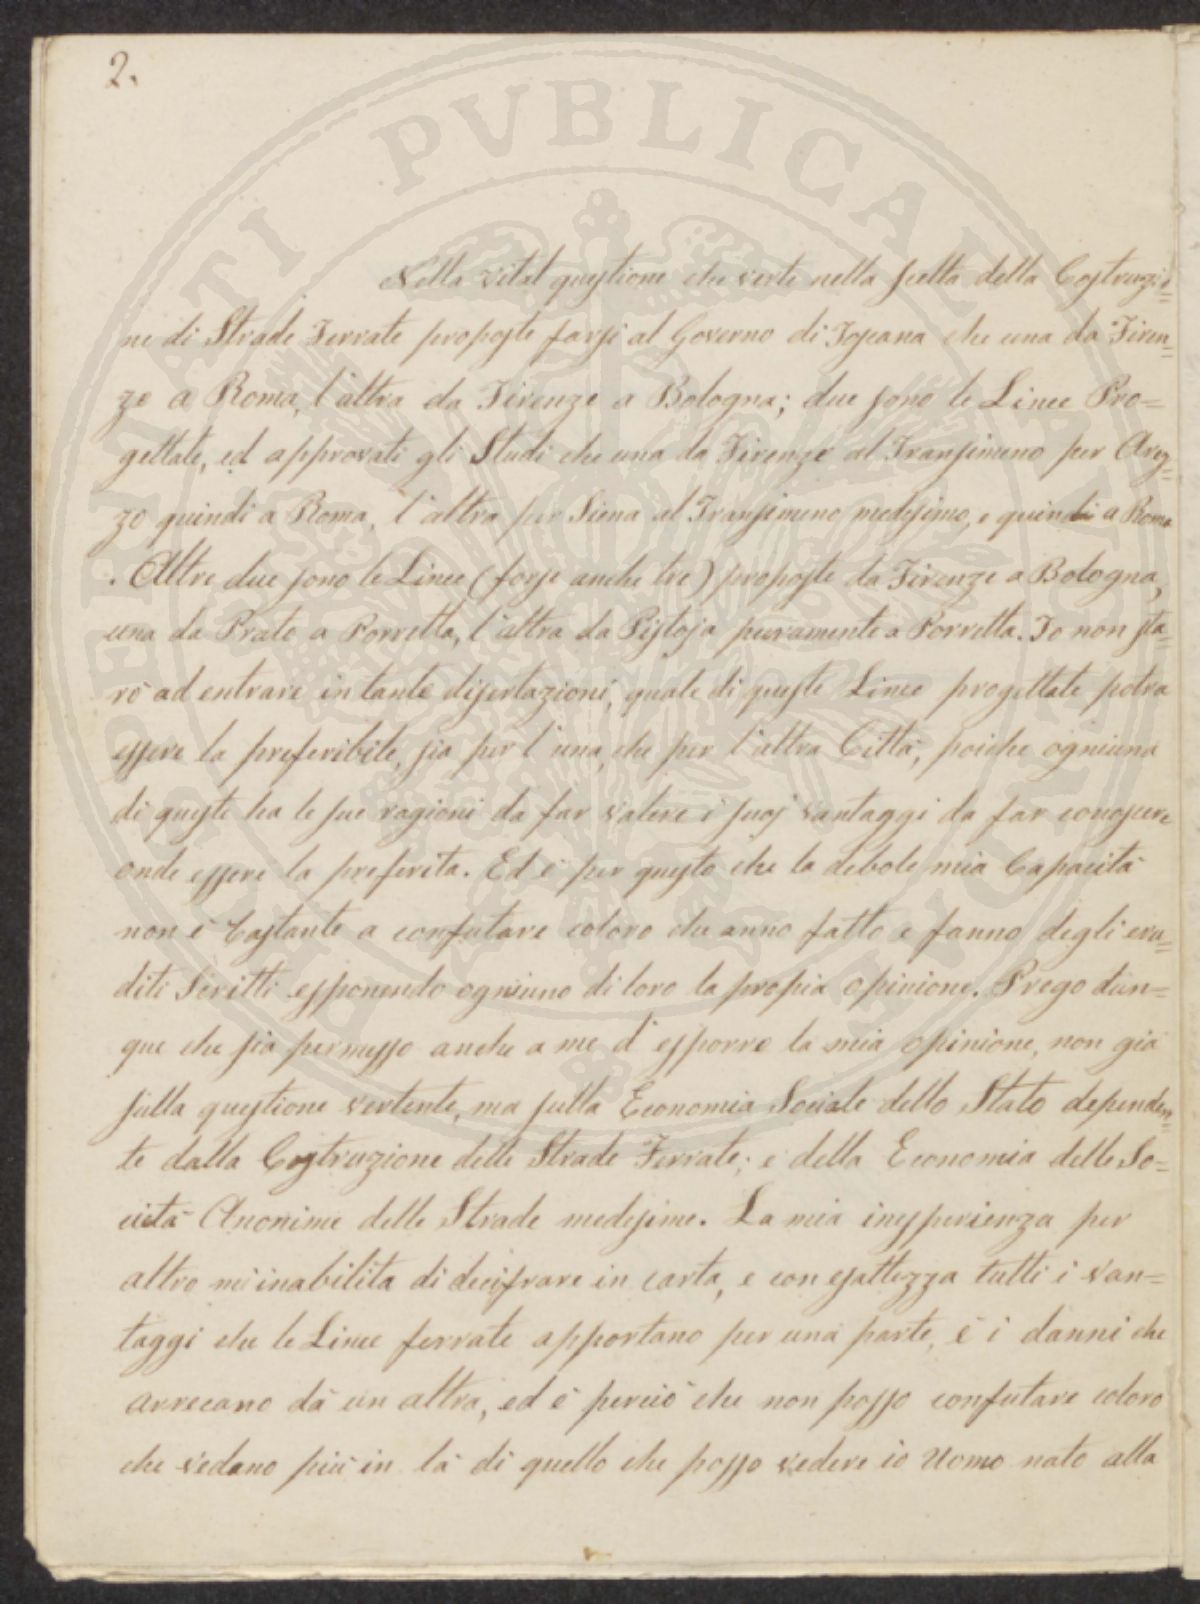 2.
Nella vital questione che verte nella scelta della Costruzio=
ne di Strade Ferrate proposte farsi al Governo di Toscana che una da Firen=
ze a Roma, l'altra da Firenze a Bologna; due sono le Linee Pro=
gettate, ed approvati gli Studi che una da Firenze al Transimeno per Arez=
zo quindi a Roma, l'altra per Siena al Transimeno medesimo, e quindi a Roma
. Altre due sono le Linee (forse anche tre) proposte da Firenze a Bologna,
una da Prato a Porretta, l'altra da Pistoja puramente a Porretta. Io non sta=
rò ad entrare in tante disertazioni, quale di queste Linee progettate potra
essere la preferibile, sia per l'una, che per l'altra Città, poiche ogniuna
di queste ha le sue ragioni da far valere i suoj vantaggi da far conoscere
onde essere la preferita. Ed è per questo che la debole mia Capacità
non è bastante a confutare coloro che anno fatto e fanno degli eru=
diti Scritti esponendo ogniuno di loro la propia opinione. Prego dun=
que che sia permesso anche a me d'esporre la mia opinione, non già
sulla questione vertente, ma sulla Economia Sociale dello Stato dependen=
te dalla Costruzione delle Strade Ferrate; e della Economia delle So=
cietà Anonime delle Strade medesime. La mia inesperienza per
altro mi inabilita di decifrare in carta, e con esattezza tutti i van=
taggi che le Linee ferrate apportano per una parte, è i danni che
arrecano dà un altra, ed è perciò che non posso confutare coloro
che vedano più in là di quello che posso vedere io Uomo nato alla
PERINATI PVBLICAE